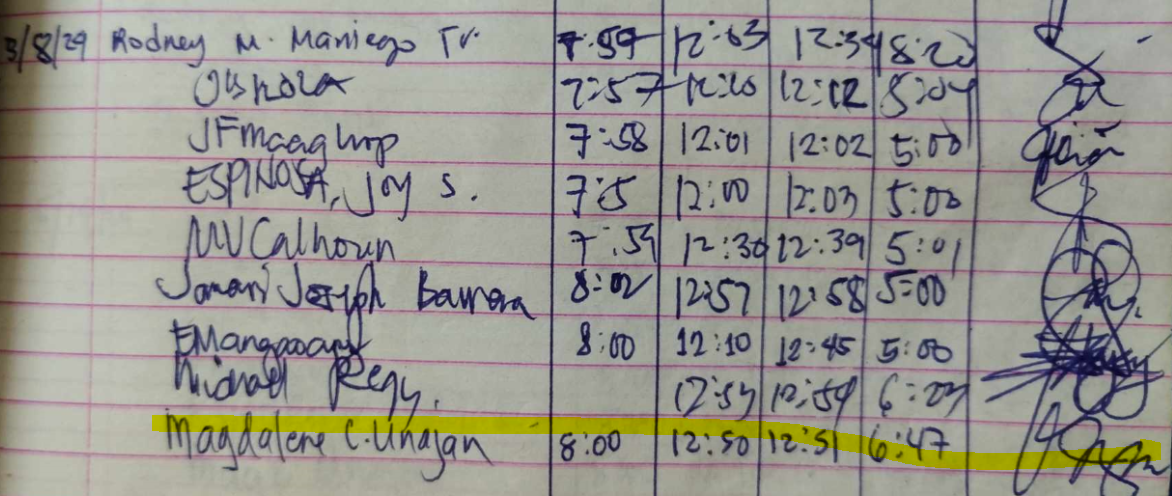 3/8/29 Rodney M. Maniego Jr. 7:59 12:03 12:34 8:20
7:57 12:10 12:02 5:04
JFMaaghop 7:58 12:01 12:02 5:00
ESPINOSA, Joy S. 7:5 12:00 12:03 5:00
MVCalhoun 7:59 12:30 12:39 5:01
Jamari Joseph Barrera 8:02 12:57 12:58 5:00
8:00 12:10 12:45 5:00
Michael 12:53 12:54 6:23
Magdalene C. Unajan 8:00 12:50 12:51 6:47